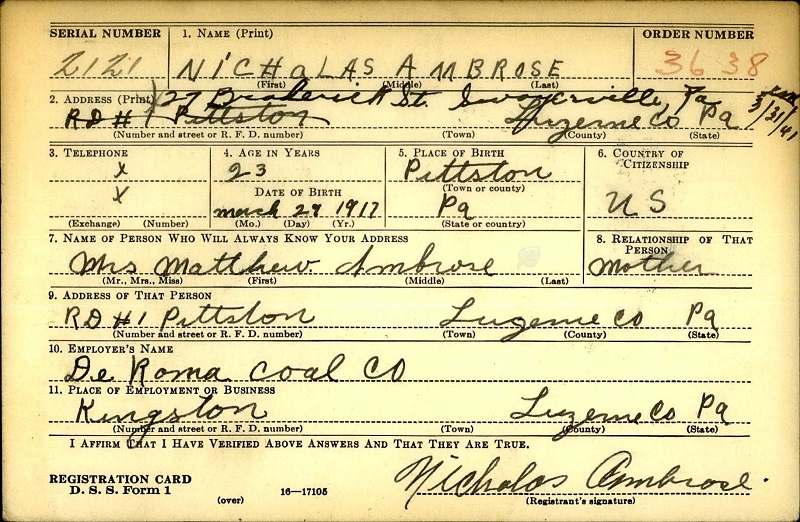 SERIAL NUMBER 1. NAME (Print) ORDER NUMBER
2121 NICHOLAS AMBROSE 3638
(First) (Middle) (Last)
27 Broderick St. Swoyerville, Pa 3/31/41
2. ADDRESS (Print)
RD #1 Pittston Luzerne Co Pa
(Number and street or R. F. D. number) (Town) (County) (State)
3. TELEPHONE 4. AGE IN YEARS 5. PLACE OF BIRTH 6. COUNTRY OF CITIZENSHIP
x 23 Pittston
(Town or county)
x DATE OF BIRTH US
March 27 1917 Pa
(Exchange) (Number) (Mo.) (Day) (Yr.) (State or country)
7. NAME OF PERSON WHO WILL ALWAYS KNOW YOUR ADDRESS 8. RELATIONSHIP OF THAT PERSON
Mrs Matthew Ambrose Mother
(Mr., Mrs., Miss) (First) (Middle) (Last)
9. ADDRESS OF THAT PERSON
RD #1 Pittston Luzerne Co Pa
(Number and street or R. F. D. number) (Town) (County) (State)
10. EMPLOYER'S NAME
De Roma Coal Co
11. PLACE OF EMPLOYMENT OR BUSINESS
Kingston Luzerne Co Pa
(Number and street or R. F. D. number) (Town) (County) (State)
I AFFIRM THAT I HAVE VERIFIED ABOVE ANSWERS AND THAT THEY ARE TRUE.
Nicholas Ambrose.
REGISTRATION CARD
D. S. S. Form 1 (over) 16—17105 (Registrant's signature)